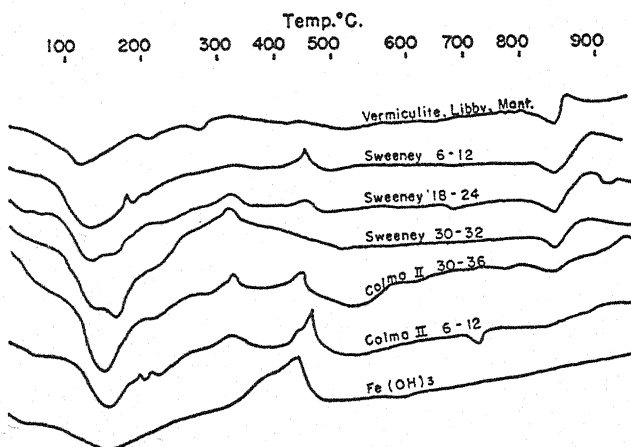 Temp.°C.
100 200 300 400 500 600 700 800 900
Vermiculite, Libby, Mont.
Sweeney 6-12
Sweeney 18-24
Sweeney 30-32
Colma II 30-36
Colma II 6-12
Fe (OH)3